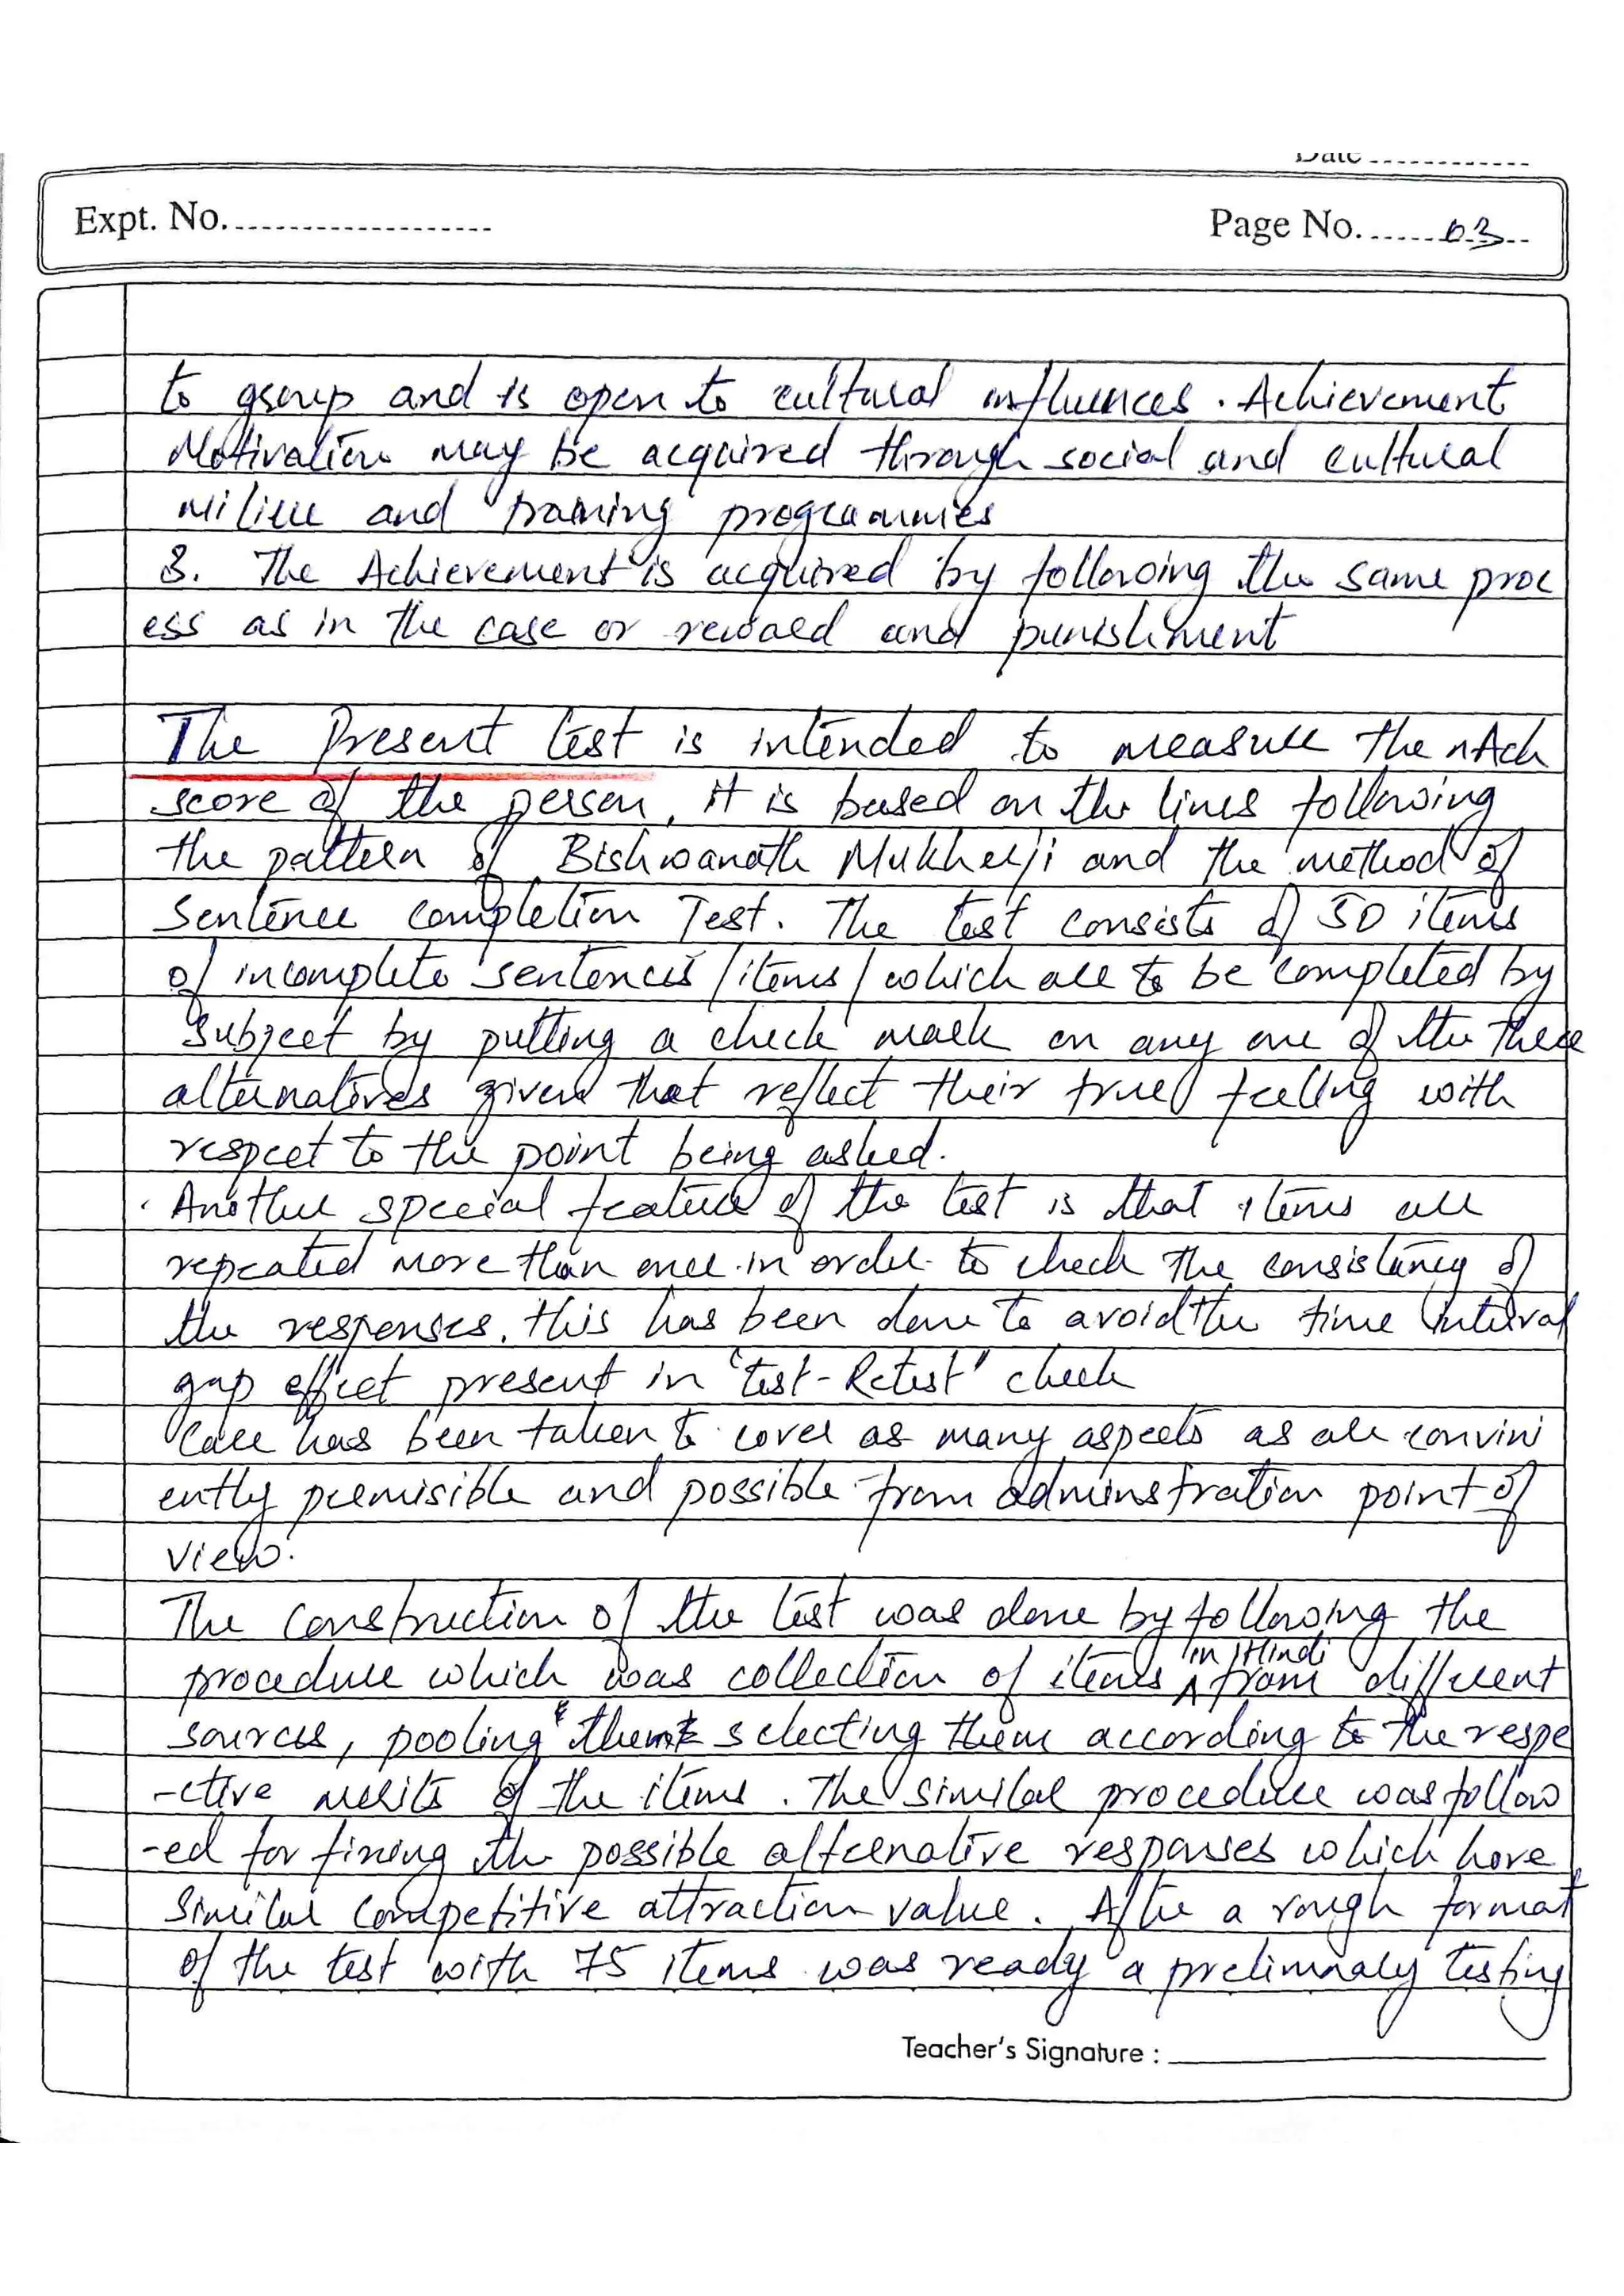 Date
Expt. No.
Page No. 03
to group and is open to cultural influences. Achievement
Motivation may be acquired through social and cultural
milieu and training programmies
3. The Achievement is acquired by following the same proc
ess as in the case or reward and punishment
The Present test is intended to measure the nAch
score of the person, it is based on the lines following
the pattern of Bishwanath Mukherji and the method of
Sentence completion Test. The test consists of 50 items
of incomplete sentences/items/which are to be completed by
subject by putting a check mark on any one of the three
alternatives given that reflect their true feeling with
respect to the point being asked.
. Another special feature of the test is that items are
repeated more than once in order to check the consistency of
the responses. this has been done to avoid the time interval
gap effect present in "test-Retest" check
Care has been taken to cover as many aspects as are convini
ently premisible and possible from adminstration point of
view.
The construction of the test was done by following the
procedure which was collection of items in Hindi from different
sources, pooling them & selecting them according to the respe
-ctive merits of the items. The similar procedure was follow
-ed for fixing the possible alternative responses which have
similar competitive attraction value. After a rough format
of the test with 75 items was ready a prelimnary testing
Teacher's Signature :